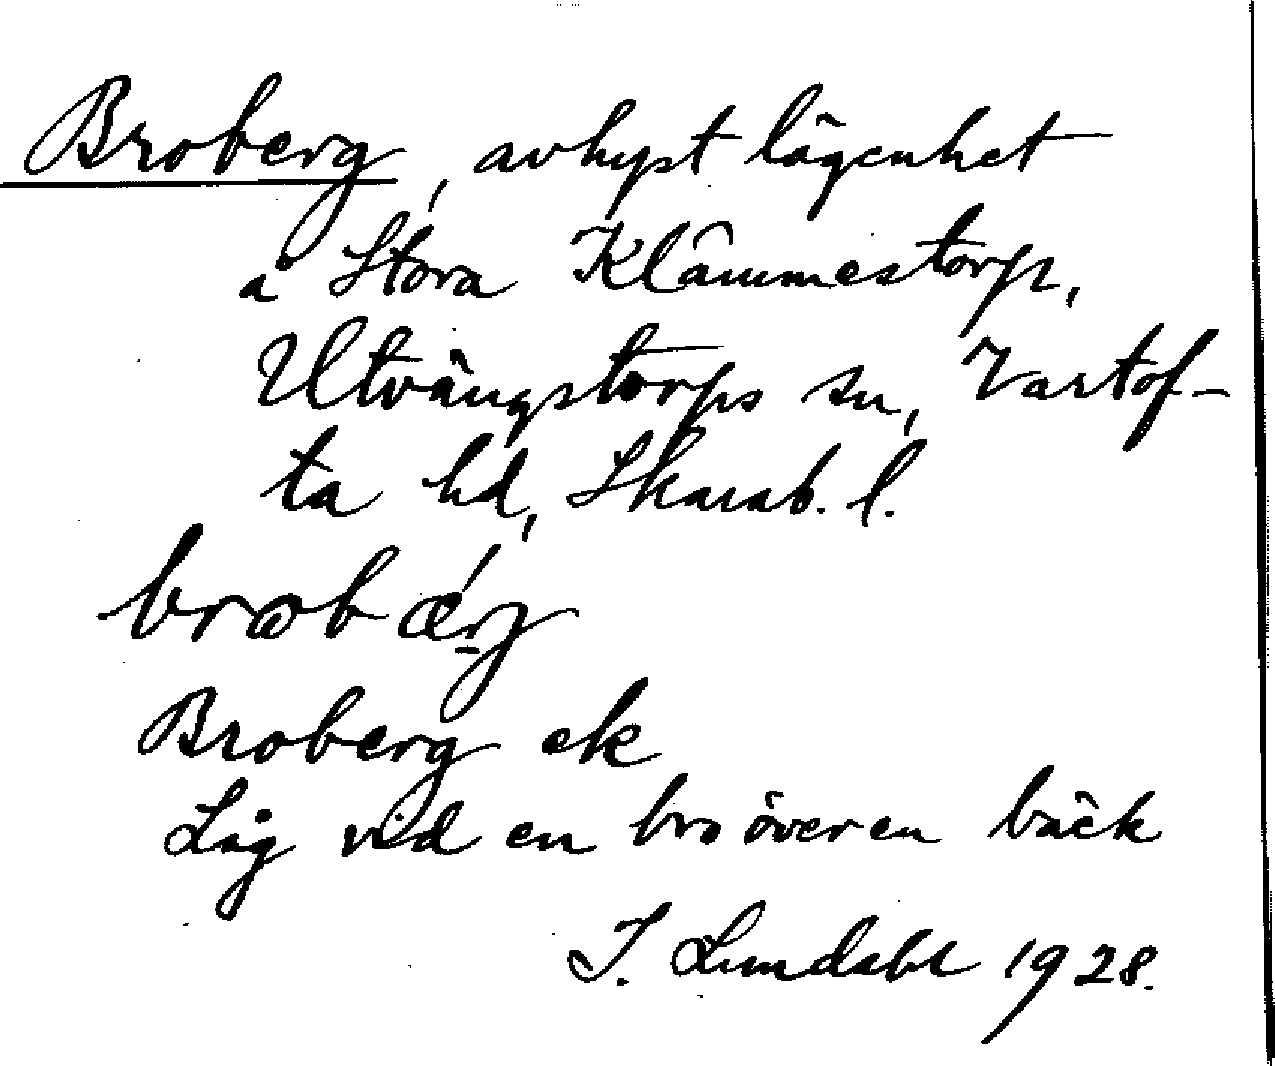 Broberg, avhyst lägenhet
å Stora Klämmestorp,
Utvängstorps sn, Vartof-
ta hd, Skarab. l.
Broberg ek
Låg vid en bro över en bäck
I. Lundahl 1928.